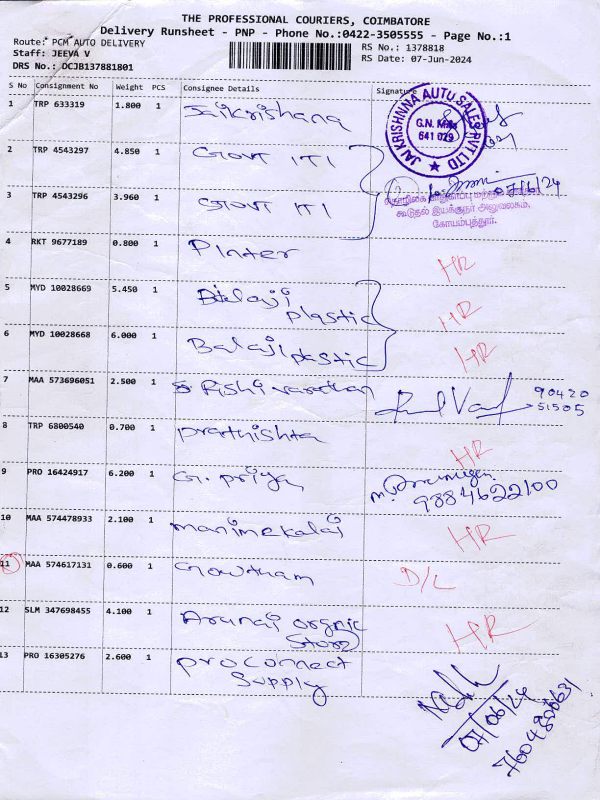 THE PROFESSIONAL COURIERS, COIMBATORE
Delivery Runsheet - PNP - Phone No.:0422-3505555 - Page No.:1
Route: PCM AUTO DELIVERY
RS No.: 1378818
Staff: JEEVA V
RS Date: 07-Jun-2024
DRS No.: DCJB137881801
S No Consignment No Weight PCS Consignee Details Signature
1 TRP 633319 1.800 1 Saikrishana
JAI KRISHNNA AUTO SALES PVT LTD
G.N. Mills
641 029
2 TRP 4543297 4.850 1 GOVT ITI
07/6/24
3 TRP 4543296 3.960 1 GOVT ITI
கூடுதல் இயக்குநர் அலுவலகம்,
கோயம்புத்தூர்.
4 RKT 9677189 0.800 1 Pinter HR
5 MYD 10028669 5.450 1 Balaji plastic HR
6 MYD 10028668 6.000 1 Balaji pastic HR
7 MAA 573696051 2.500 1 Rishi varathan 90420 51505
8 TRP 6800540 0.700 1 prathishta HR
9 PRO 16424917 6.200 1 G. priya 9884622100
10 MAA 574478933 2.100 1 manimekalai HR
11 MAA 574617131 0.600 1 Gowtham D/L
12 SLM 347698455 4.100 1 Arunai orgnic Store HR
13 PRO 16305276 2.600 1 pro connect Supply
07/06/24
7604800631